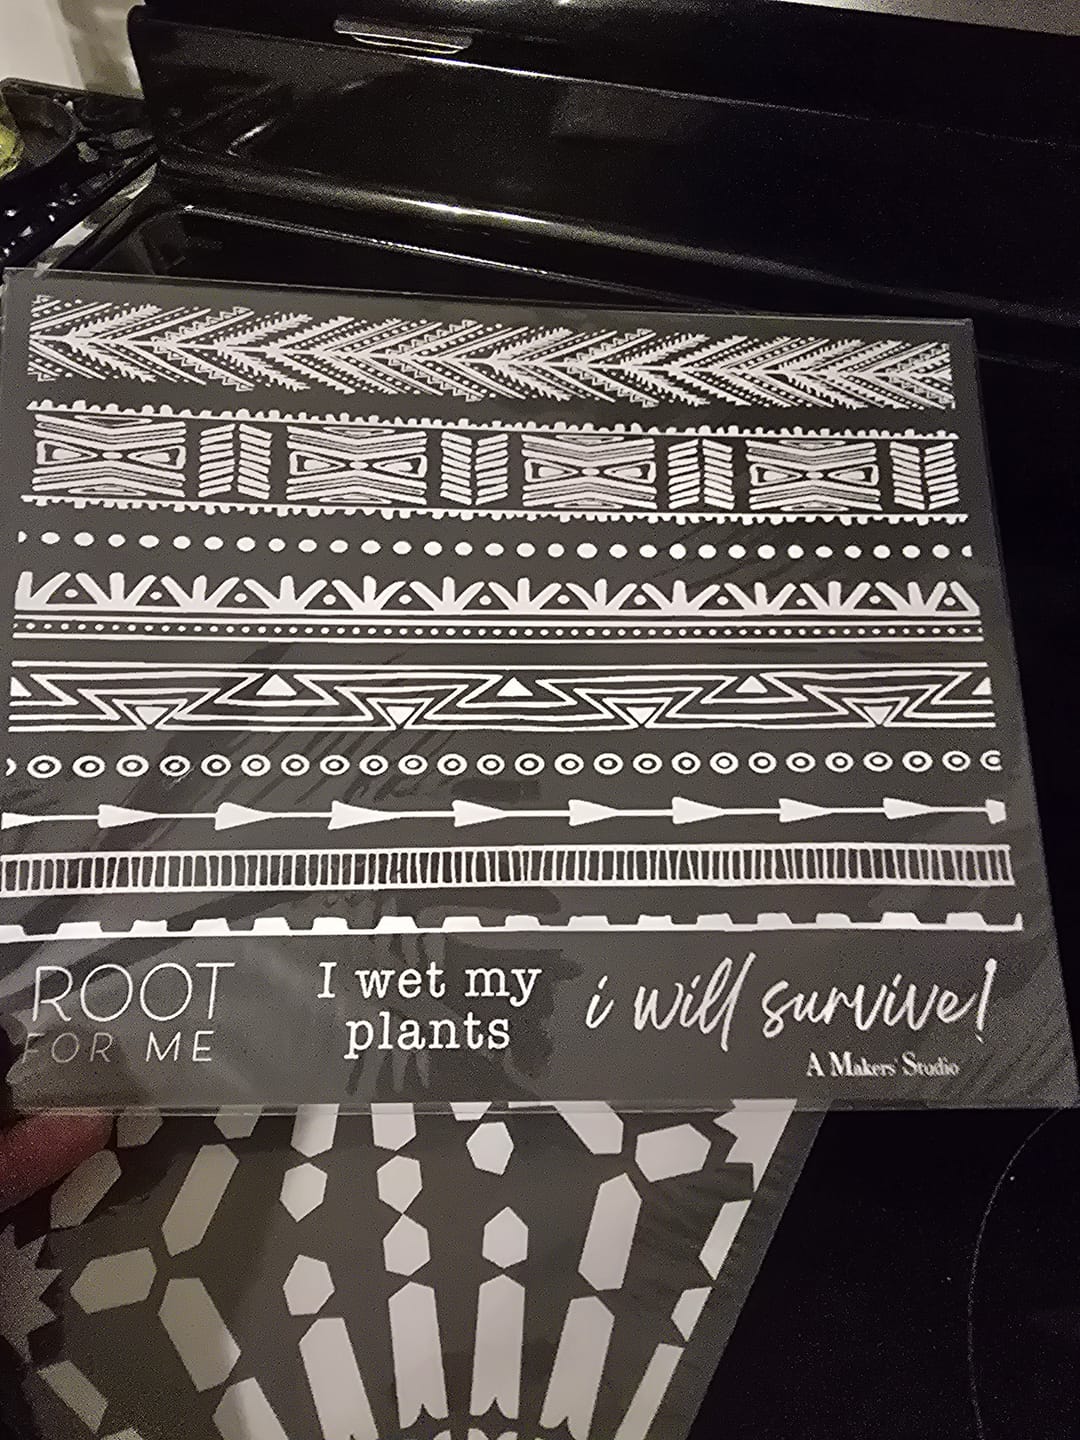 ROOT
FOR ME
I wet my
plants
i will survive!
A Makers' Studio